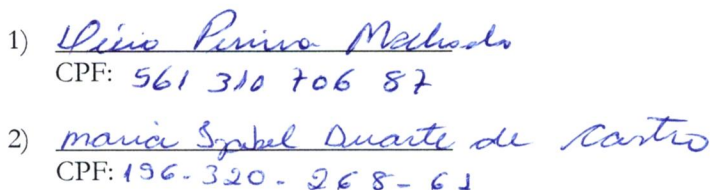 1) Décio Pereira Machado
CPF: 561 310 706 87
2) maria Izabel Duarte de Castro
CPF: 196-320-268-61